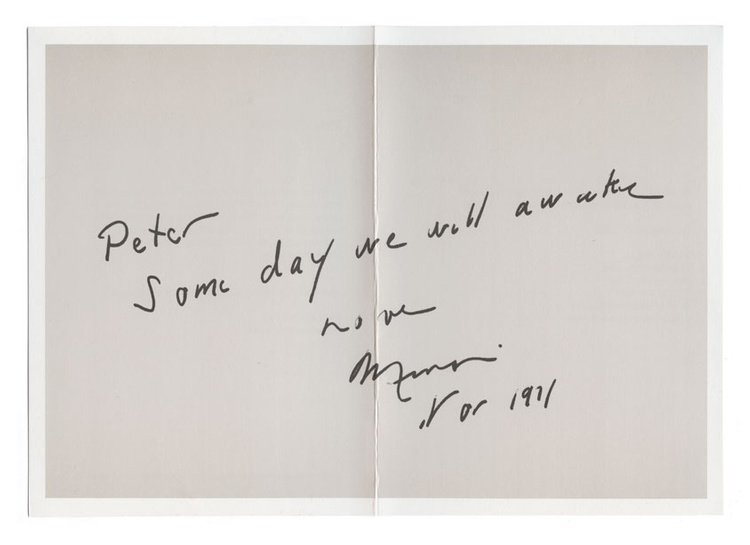 Peter
Some day we will awake
Nov 1971